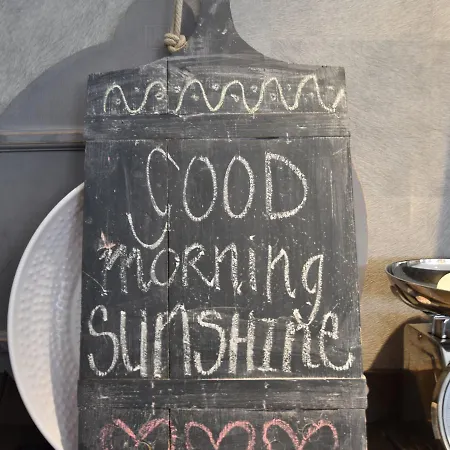 GOOD
morning
SUNSHINE